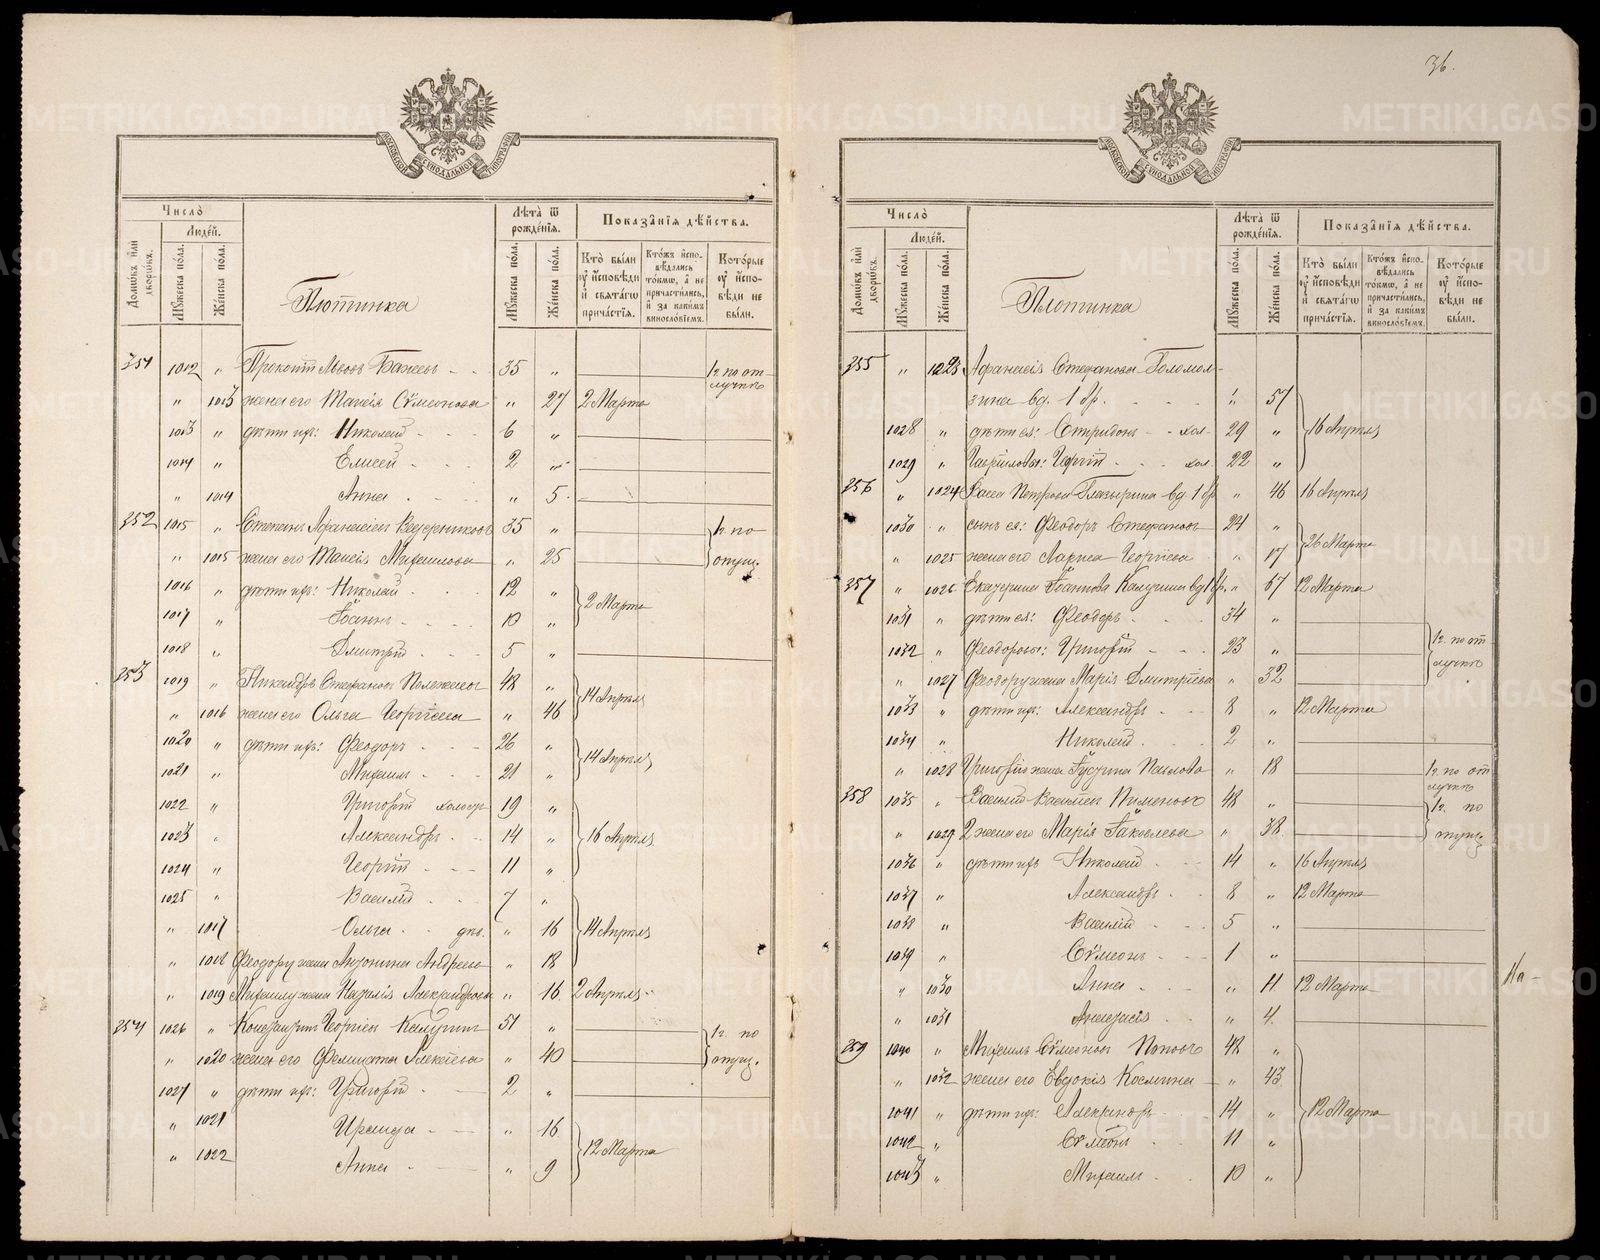 36.
МОСКОВСКОЙ СУНОДАЛЬНОЙ ТИПОГРАФІИ
Число̀
Люде́й.
Домѡ́въ и҆лѝ дворѡ́въ.
Мꙋ́жеска по́ла.
Же́нска по́ла.
Плотинка
Лѣ́та ѿ рожде́нїѧ.
Мꙋ́жеска по́ла.
Же́нска по́ла.
Показа̑нїѧ дѣ́йства.
Кто̀ бы́ли оу҆ и҆́сповѣди и҆ свѧта́гѡ прича́стїѧ.
Кто́жъ и҆спо-вѣ́дались то́кмѡ, а҆ не причасти́лись, и҆ за каки́мъ винослові́емъ.
Кото́рые оу҆ и҆́спо-вѣди не бы́ли.
351 1012 „ Прокопій Львовъ Бажевъ - - 35 „ 1г. по от
лучкѣ
„ 1013 жена его Таисія Сѵмеонова „ 27 2 Марта
1013 „ дѣти ихъ: Николай - - - 6 „
1014 „ Елисей - - - 2 „
„ 1014 Анна - - - „ 5
352 1015 „ Степанъ Аѳанасіевъ Ведерниковъ 35 „ 1г. по
„ 1015 жена его Таисія „ 25 опущ.
1016 „ дѣти ихъ: Николай - - - 12 „
2 Марта
1017 „ Іоаннъ - - - 10 „
1018 „ Димитрій - - - 5 „
353 1019 „ Никандръ Стефановъ 48 „
14 Апрѣля
„ 1016 жена его Ольга Георгіева „ 46
1020 „ дѣти ихъ: Ѳеодоръ - - - 26 „
14 Апрѣля
1021 „ Михаилъ - - - 21 „
1022 „ Григорій холостъ 19 „
1023 „ Александръ - - 14 „ 16 Апрѣля
1024 „ Георгій - - - 11 „
1025 „ Василій - - - 7 „
„ 1017 Ольга - - дѣв. „ 16 14 Апрѣля
„ 1018 Ѳеодору жена Антонина Андреева „ 18
„ 1019 Михаилу жена Наталія Александрова „ 16 2 Апрѣля
354 1026 „ Константинъ Георгіевъ Калугинъ 51 „ 1г. по
„ 1020 жена его Ѳелицата Алексіева „ 40 опущ.
1027 „ дѣти ихъ: Григорій - - 2 „
„ 1021 Ираида - - „ 16
12 Марта
„ 1022 Анна - - „ 9
МОСКОВСКОЙ СУНОДАЛЬНОЙ ТИПОГРАФІИ
Число̀
Люде́й.
Домѡ́въ и҆лѝ дворѡ́въ.
Мꙋ́жеска по́ла.
Же́нска по́ла.
Плотинка
Лѣ́та ѿ рожде́нїѧ.
Мꙋ́жеска по́ла.
Же́нска по́ла.
Показа̑нїѧ дѣ́йства.
Кто̀ бы́ли оу҆ и҆́сповѣди и҆ свѧта́гѡ прича́стїѧ.
Кто́жъ и҆спо-вѣ́дались то́кмѡ, а҆ не причасти́лись, и҆ за каки́мъ винослові́емъ.
Кото́рые оу҆ и҆́спо-вѣди не бы́ли.
355 „ 1023 Аѳанасія Стефанова Голомол-
зина вд. 1 бр. - - - „ 57
1028 „ дѣти ея: Спиридонъ - - хол. 29 „ 16 Апрѣля
1029 „ Гавріиловы: Георгій - - - хол. 22 „
356 „ 1024 Васса Петрова Глазырина вд. 1 бр „ 46 16 Апрѣля
1030 „ сынъ ея: Ѳеодоръ Стефановъ 24 „
26 Марта
„ 1025 жена его Лариса Георгіева „ 17
357 „ 1026 Екатерина Іоаннова Калугина вд 1 бр. „ 67 12 Марта
1031 „ дѣти ея: Ѳеодоръ - - - 34 „
1г. по от
1032 „ Ѳеодоровы: Григорій - - - 23 „
лучкѣ
„ 1027 Ѳеодору жена Марія Димитріева „ 32
1033 „ дѣти ихъ: Александръ - - 8 „ 12 Марта
1034 „ Николай - - 2 „
„ 1028 Григорію жена Іустина Павлова „ 18 1г. по от
лучкѣ
358 1035 „ Василій Васильевъ Пименовъ 48 „ 1г. по
„ 1029 2 жена его Марія Іаковлева „ 38 опущ.
1036 „ дѣти ихъ Николай - - 14 „ 16 Апрѣля
1037 „ Александръ - - 8 „ 12 Марта
1038 „ Василій - - - 5 „
1039 „ Сѵмеонъ - - - 1 „
„ 1030 Анна - - - „ 11 12 Марта
„ 1031 Анастасія - - „ 4
359 1040 „ Михаилъ Сѵмеоновъ Поповъ 48 „
„ 1032 жена его Евдокія Космина - „ 43
1041 „ дѣти ихъ: Александръ - - 14 „ 12 Марта
1042 „ Сѵмеонъ - - 11 „
1043 „ Михаилъ - - 10 „
METRIKI.GASO-URAL.RU